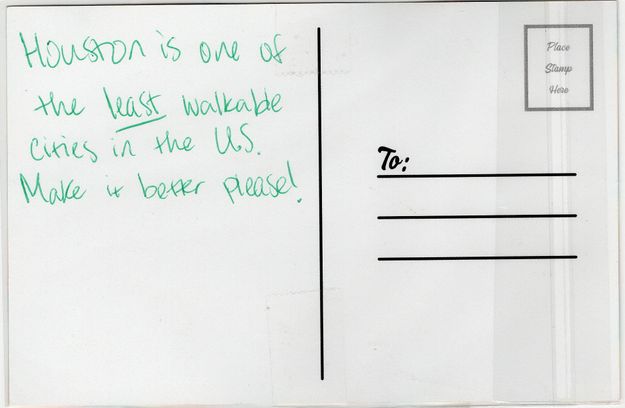 Houston is one of
the least walkable
cities in the U.S.
Make it better please!
Place
Stamp
Here
To: